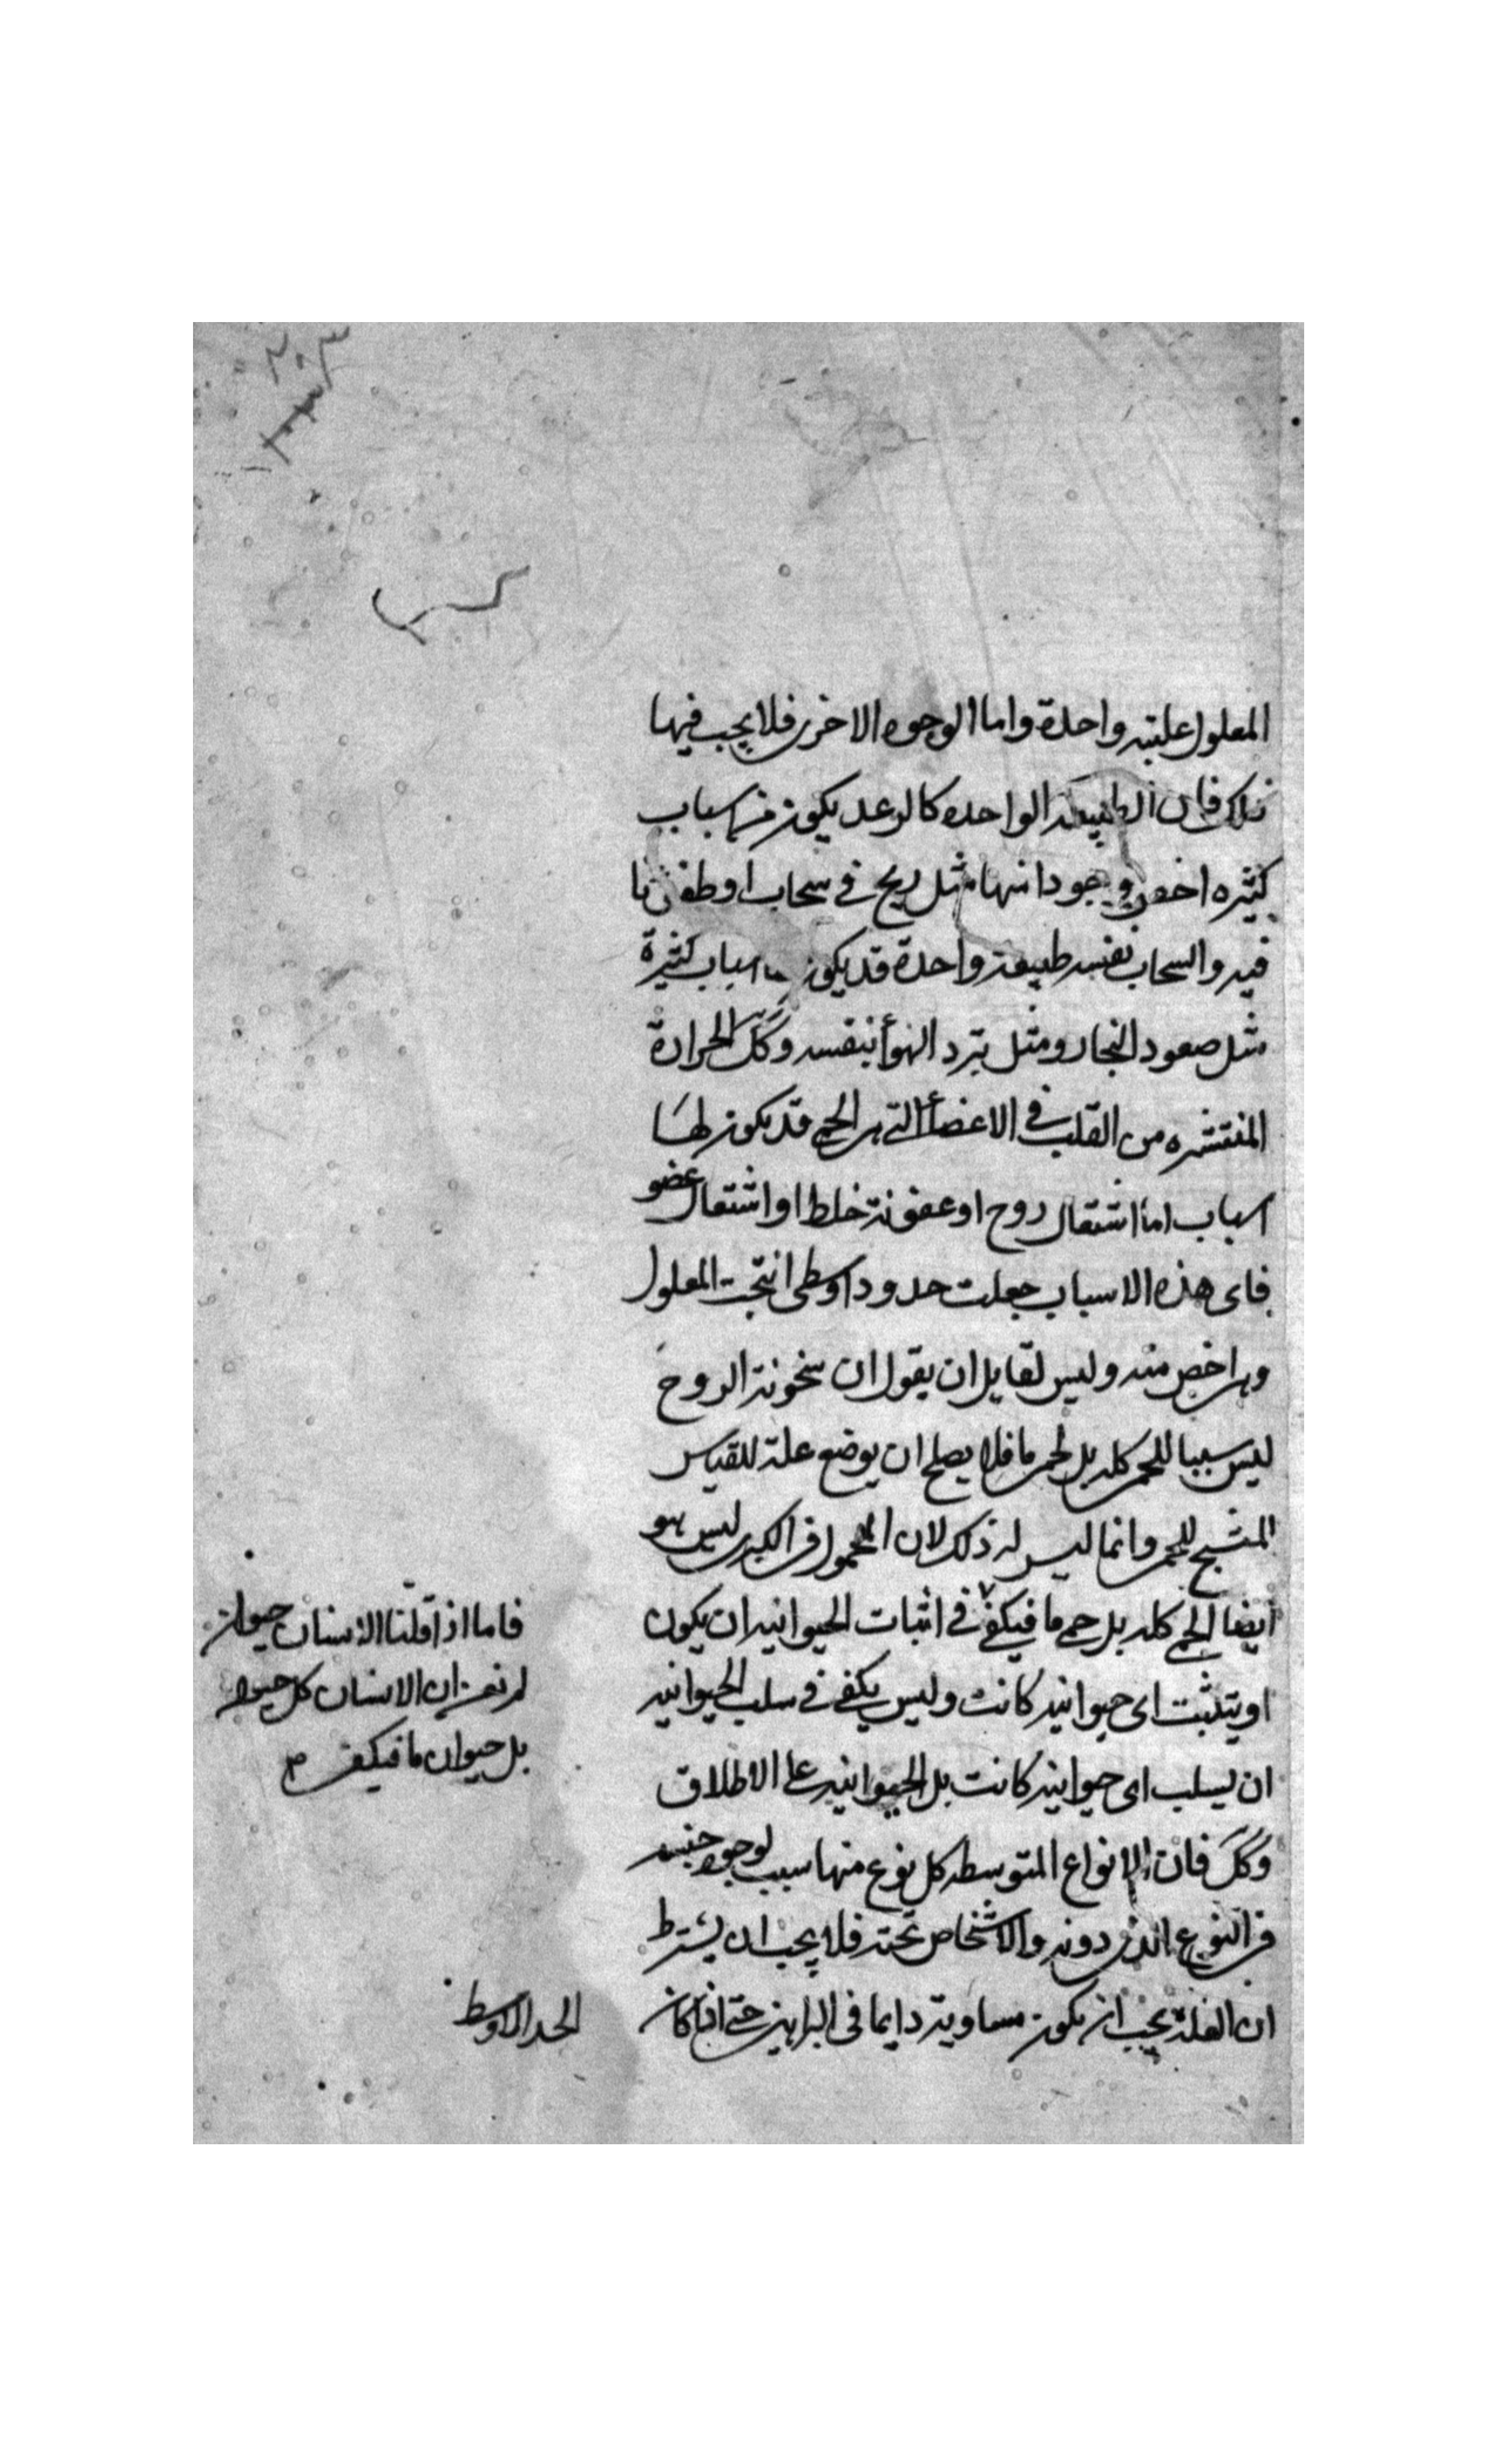 ٢٠٣
المعلول علته واحدة واما الوجوه الاخرى فلا يجب فيها
ذلك فان الطبيعة الواحده كالرعد يكون من اسباب
كثيره اخص وجودا منها مثل ريح في سحاب او طفئ نا
فيه والسحاب نفسه طبيعة واحدة قد يكون اسباب كثيرة
مثل صعود البخار ومثل تبرد الهوأ بنفسه وكك الحرارة
المنتشره من القلب في الاعضأ التي هي الحمى قد يكون لها
اسباب اما اشتعال روح او عفونة خلط او اشتعال عضو
فاى هذه الاسباب جعلت حدودا وسطى انتجت المعلول
وهي اخص منه وليس لقايل ان يقول ان سخونة الروح
ليس سببا للحمى كله بل لحمى ما فلا يصلح ان يوضع علة للقياس
المنتج للحمى وانما ليس له ذلك لان المحمول في الكبرى ليس هو
ايضا الحمى كله بل حمى ما فيكفى في اثبات الحيوانيه ان يكون
او يتثبت اى حيوانيه كانت وليس يكفى في سلب الحيوانيه
ان يسلب اى حيوانيه كانت بل الحيوانيه على الاطلاق
وكك فان الانواع المتوسطه كل نوع منها سبب لوجود جنسه
في النوع الذى دونه والاشخاص تحته فلا يجب ان يشترط
ان العلة يجب ان يكون مساوية دايما في البراهين حتى اذا كان
فاما اذا قلنا الانسان حيوان
لم نعن ان الانسان كل حيوان
بل حيوان ما فيكفى
الحد الاوسط